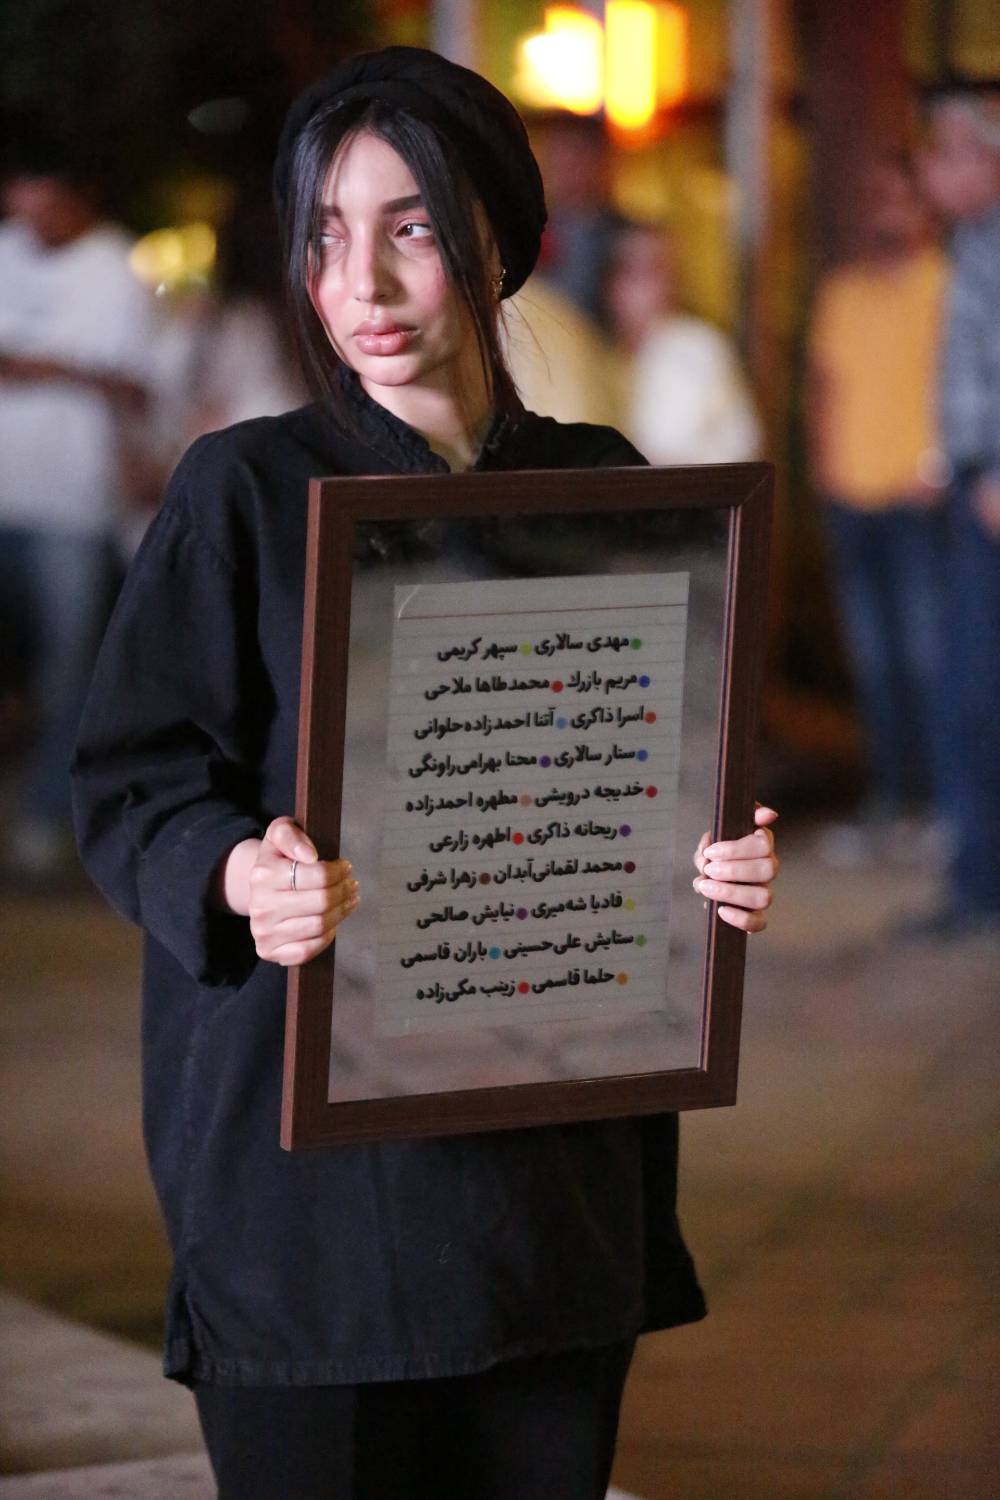 مهدی سالاری سپهر کریمی
مریم بازرك محمدطاها ملاحی
اسرا ذاکری آتنا احمدزاده‌حلوانی
ستار سالاری محنا بهرامی‌راونگی
خدیجه درویشی مطهره احمدزاده
ریحانه ذاکری اطهره زارعی
محمد لقمانی‌آبدان زهرا شرفی
فادیا شه‌میری نیایش صالحی
ستایش علی‌حسینی باران قاسمی
حلما قاسمی زینب مکی‌زاده